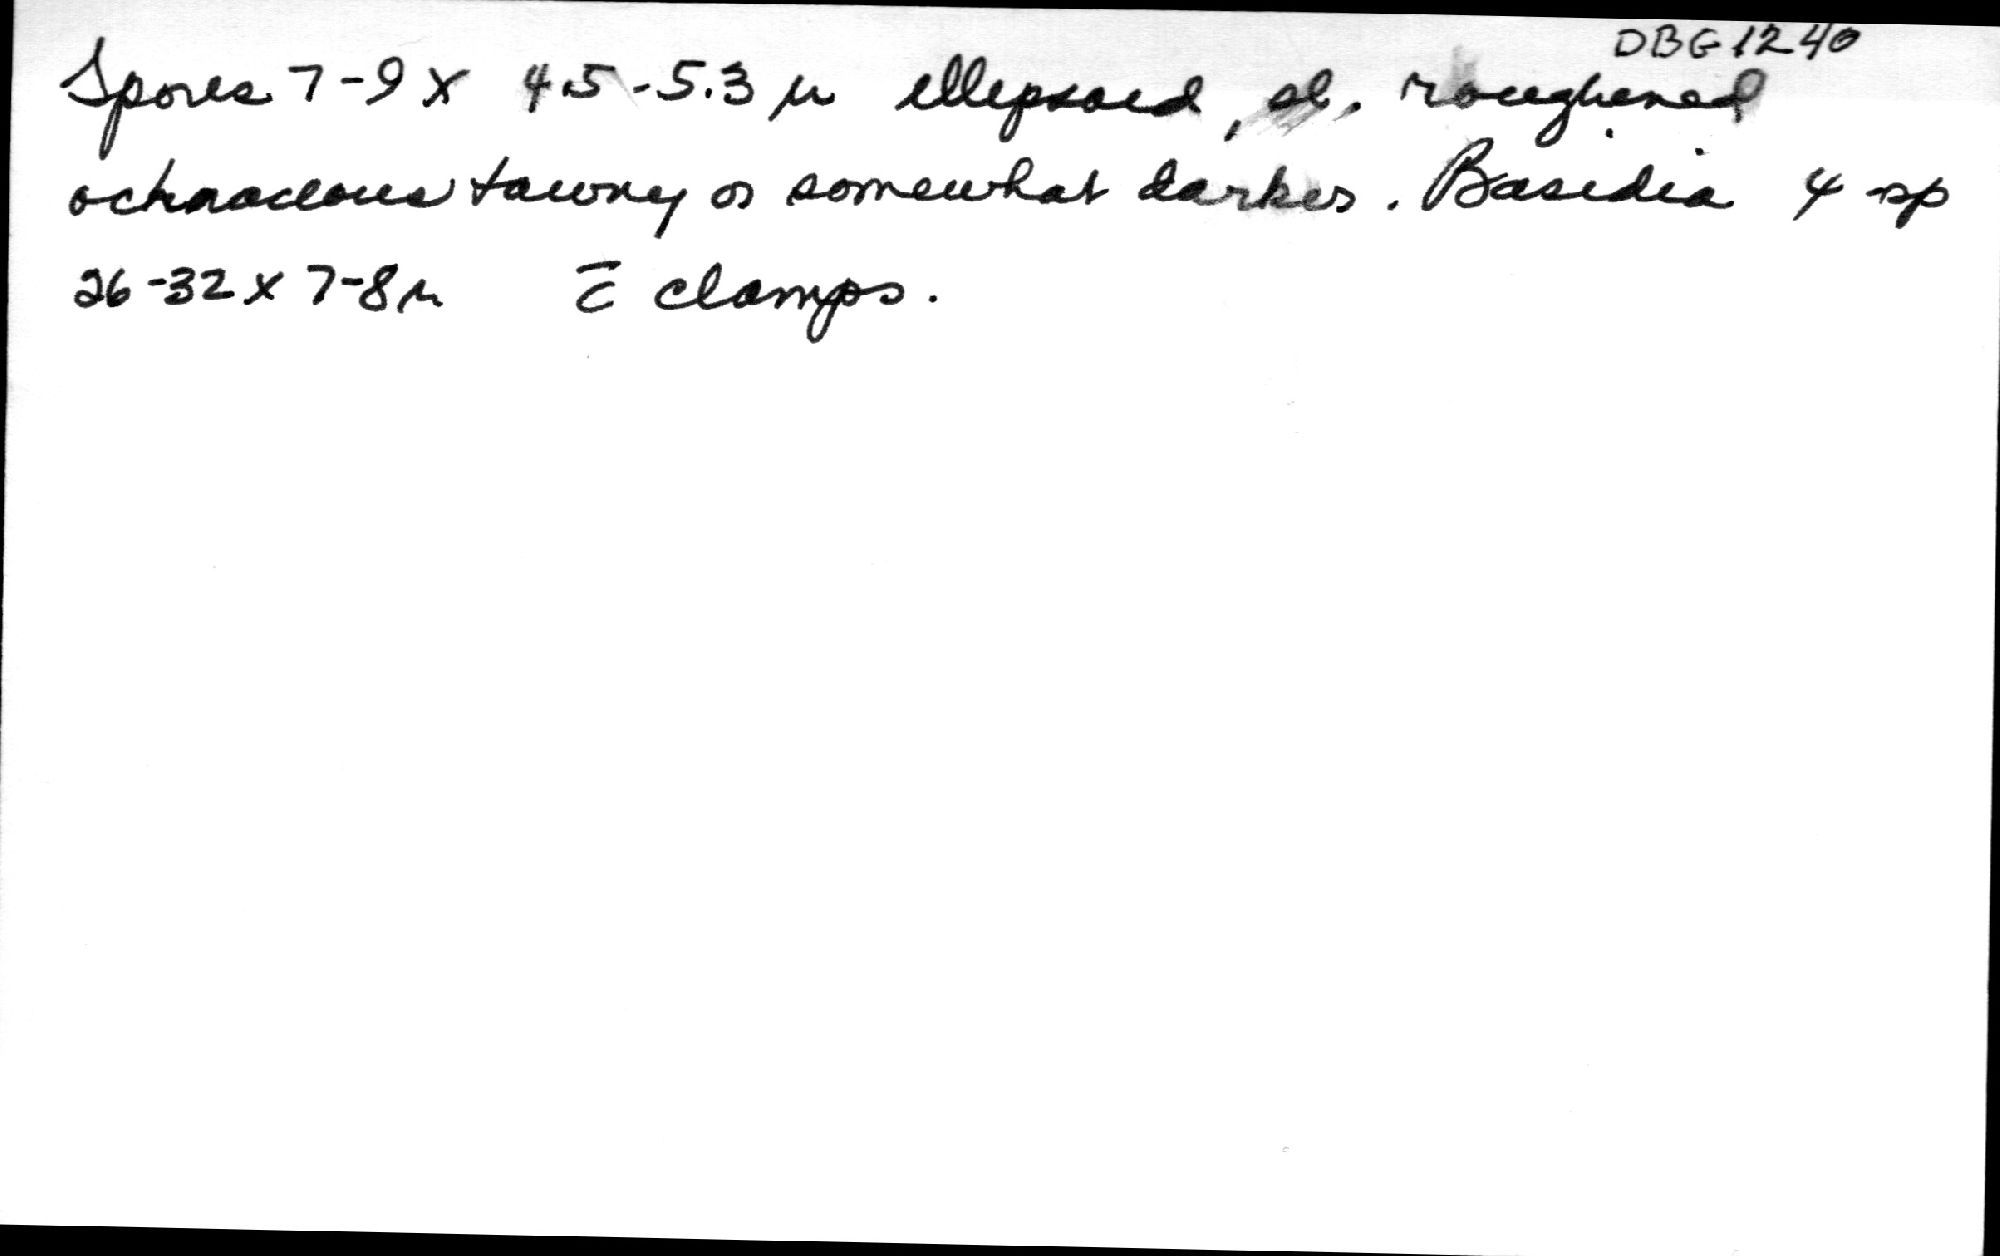 DBG 1240
Spores 7-9 x 4.5-5.3 µ ellipsoid, sl. roughened
ochraceous tawny or somewhat darker. Basidia 4 sp
26-32 x 7-8 µ c̄ clamps.